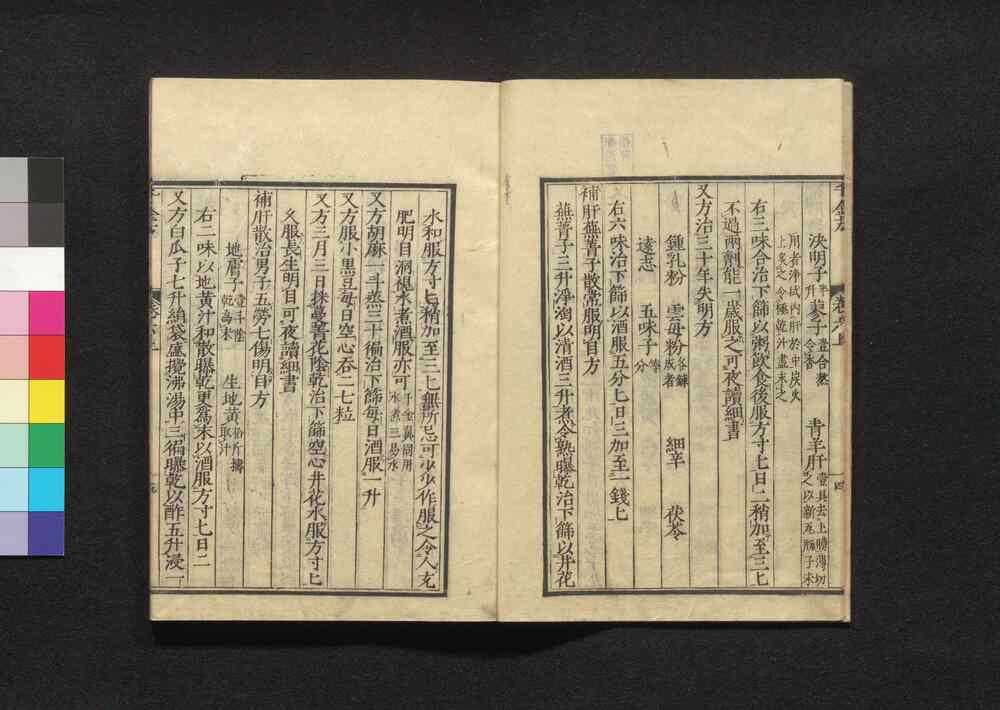 決明子半升 蓼子壹合熬令香 青羊肝壹具去上膜薄切之以新瓦瓶子未
用者淨拭內肝於中炭火上炙之令極乾汁盡末之
右三味合治下篩以粥飲食後服方寸匕日二稍加至三匕
不過兩劑能一歲服之可夜讀細書
又方治三十年失明方
鍾乳粉 雲母粉各鍊成者 細辛 茯苓
遠志 五味子等分
右六味治下篩以酒服五分匕日三加至一錢匕
補肝蕪菁子散常服明目方
蕪菁子三升淨淘以清酒三升煮令熟曝乾治下篩以井花
水和服方寸匕稍加至三匕無所忌可少少作服之令人充
肥明目洞視水煮酒服亦可千金翼同用水煮三易水
又方胡麻一斗蒸三十徧治下篩每日酒服一升
又方服小黑豆每日空心吞二七粒
又方三月三日採蔓菁花陰乾治下篩空心井花水服方寸匕
久服長生明目可夜讀細書
補肝散治男子五勞七傷明目方
地膚子壹斗陰乾為末 生地黃拾斤擣取汁
右二味以地黃汁和散曝乾更為末以酒服方寸匕日二
又方白瓜子七升絹袋盛攪沸湯中三徧曝乾以酢五升浸一